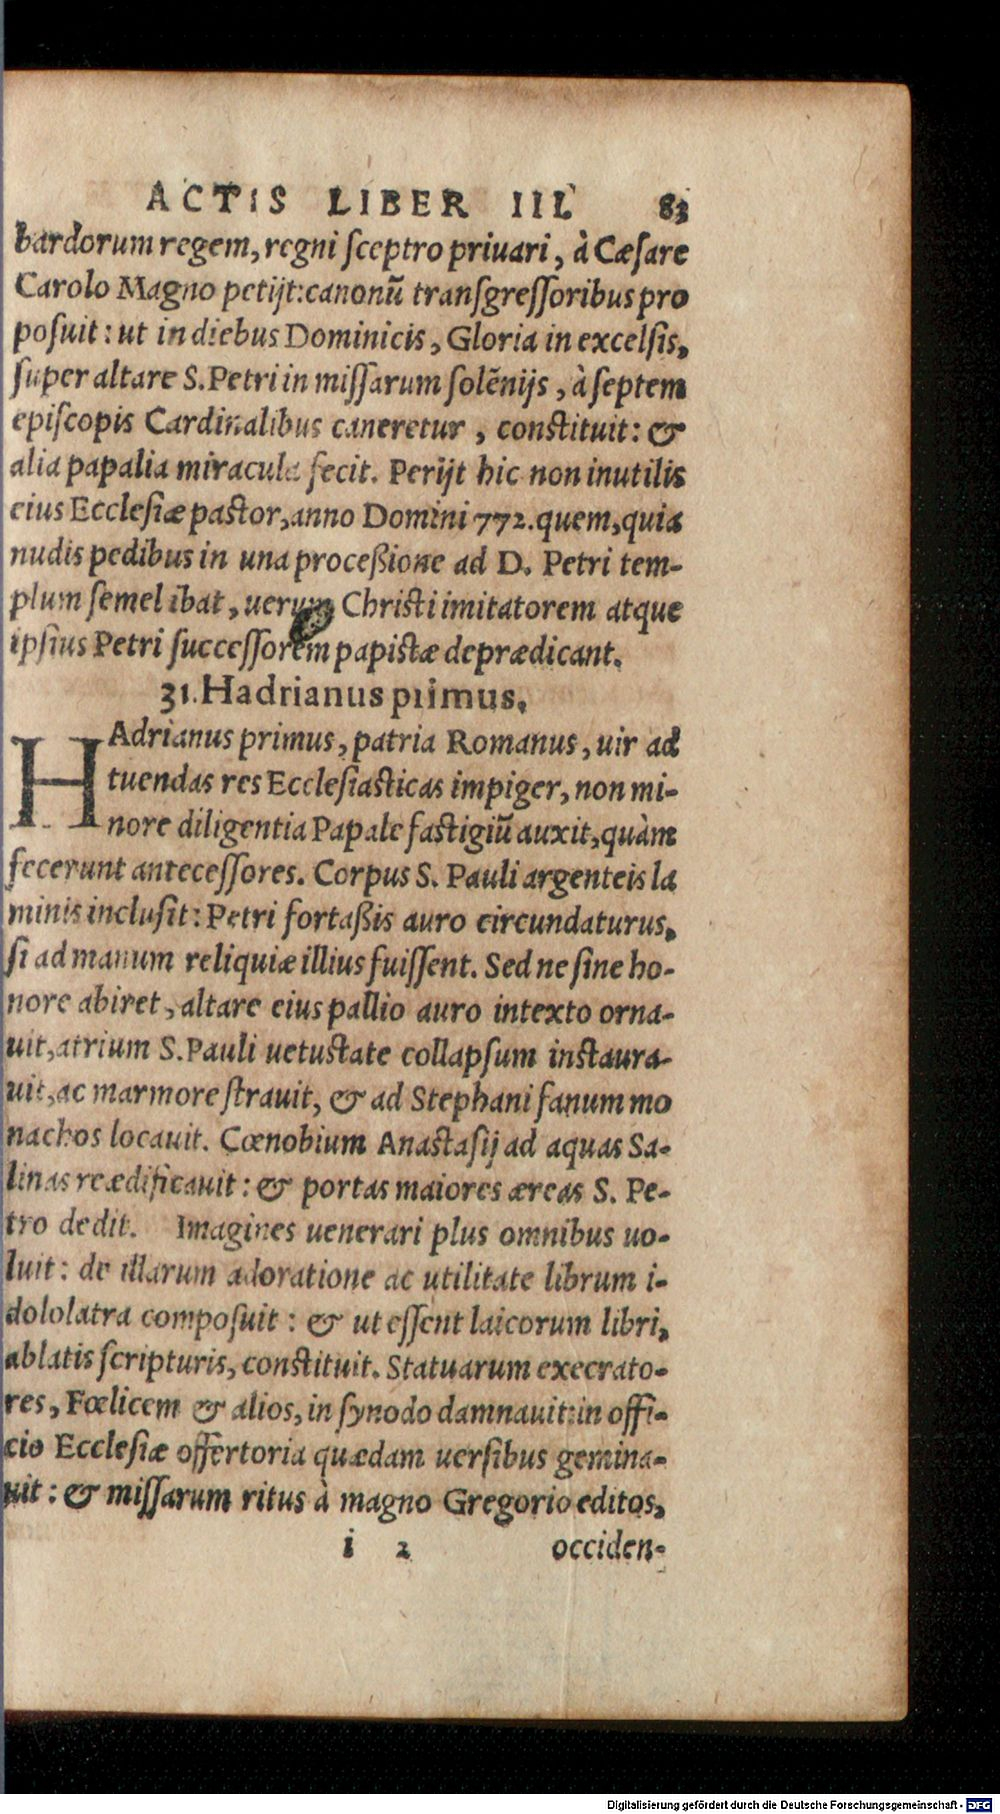 ACTIS LIBER III. 83
bardorum regem, regni ſceptro priuari, à Cæſare
Carolo Magno petijt: canonū transgreſſoribus pro
poſuit: ut in diebus Dominicis, Gloria in excelſis,
ſuper altare S. Petri in miſſarum ſolēnijs, à ſeptem
epiſcopis Cardinalibus caneretur, conſtituit: &
alia papalia miracula fecit. Perijt hic non inutilis
eius Eccleſiæ paſtor, anno Domini 772. quem, quia
nudis pedibus in una proceßione ad D. Petri tem-
plum ſemel ibat, uerum Chriſti imitatorem atque
ipſius Petri ſucceſſorem papiſtæ deprædicant.
31. Hadrianus primus.
HAdrianus primus, patria Romanus, uir ad
tuendas res Eccleſiaſticas impiger, non mi-
nore diligentia Papale faſtigiū auxit, quàm
fecerunt anteceſſores. Corpus S. Pauli argenteis la
minis incluſit: Petri fortaßis auro circundaturus,
ſi ad manum reliquiæ illius fuiſſent. Sed ne ſine ho-
nore abiret, altare eius pallio auro intexto orna-
uit, atrium S. Pauli uetuſtate collapſum inſtaura-
uit, ac marmore ſtrauit, & ad Stephani fanum mo
nachos locauit. Cœnobium Anaſtaſij ad aquas Sa-
linas reædificauit: & portas maiores æreas S. Pe-
tro dedit. Imagines uenerari plus omnibus uo-
luit: de illarum adoratione ac utilitate librum i-
dololatra compoſuit: & ut eſſent laicorum libri,
ablatis ſcripturis, conſtituit. Statuarum execrato-
res, Fœlicem & alios, in ſynodo damnauit: in offi-
cio Eccleſiæ offertoria quædam uerſibus gemina-
uit: & miſſarum ritus à magno Gregorio editos,
i 2 occiden-
Digitalisierung gefördert durch die Deutsche Forschungsgemeinschaft - DFG